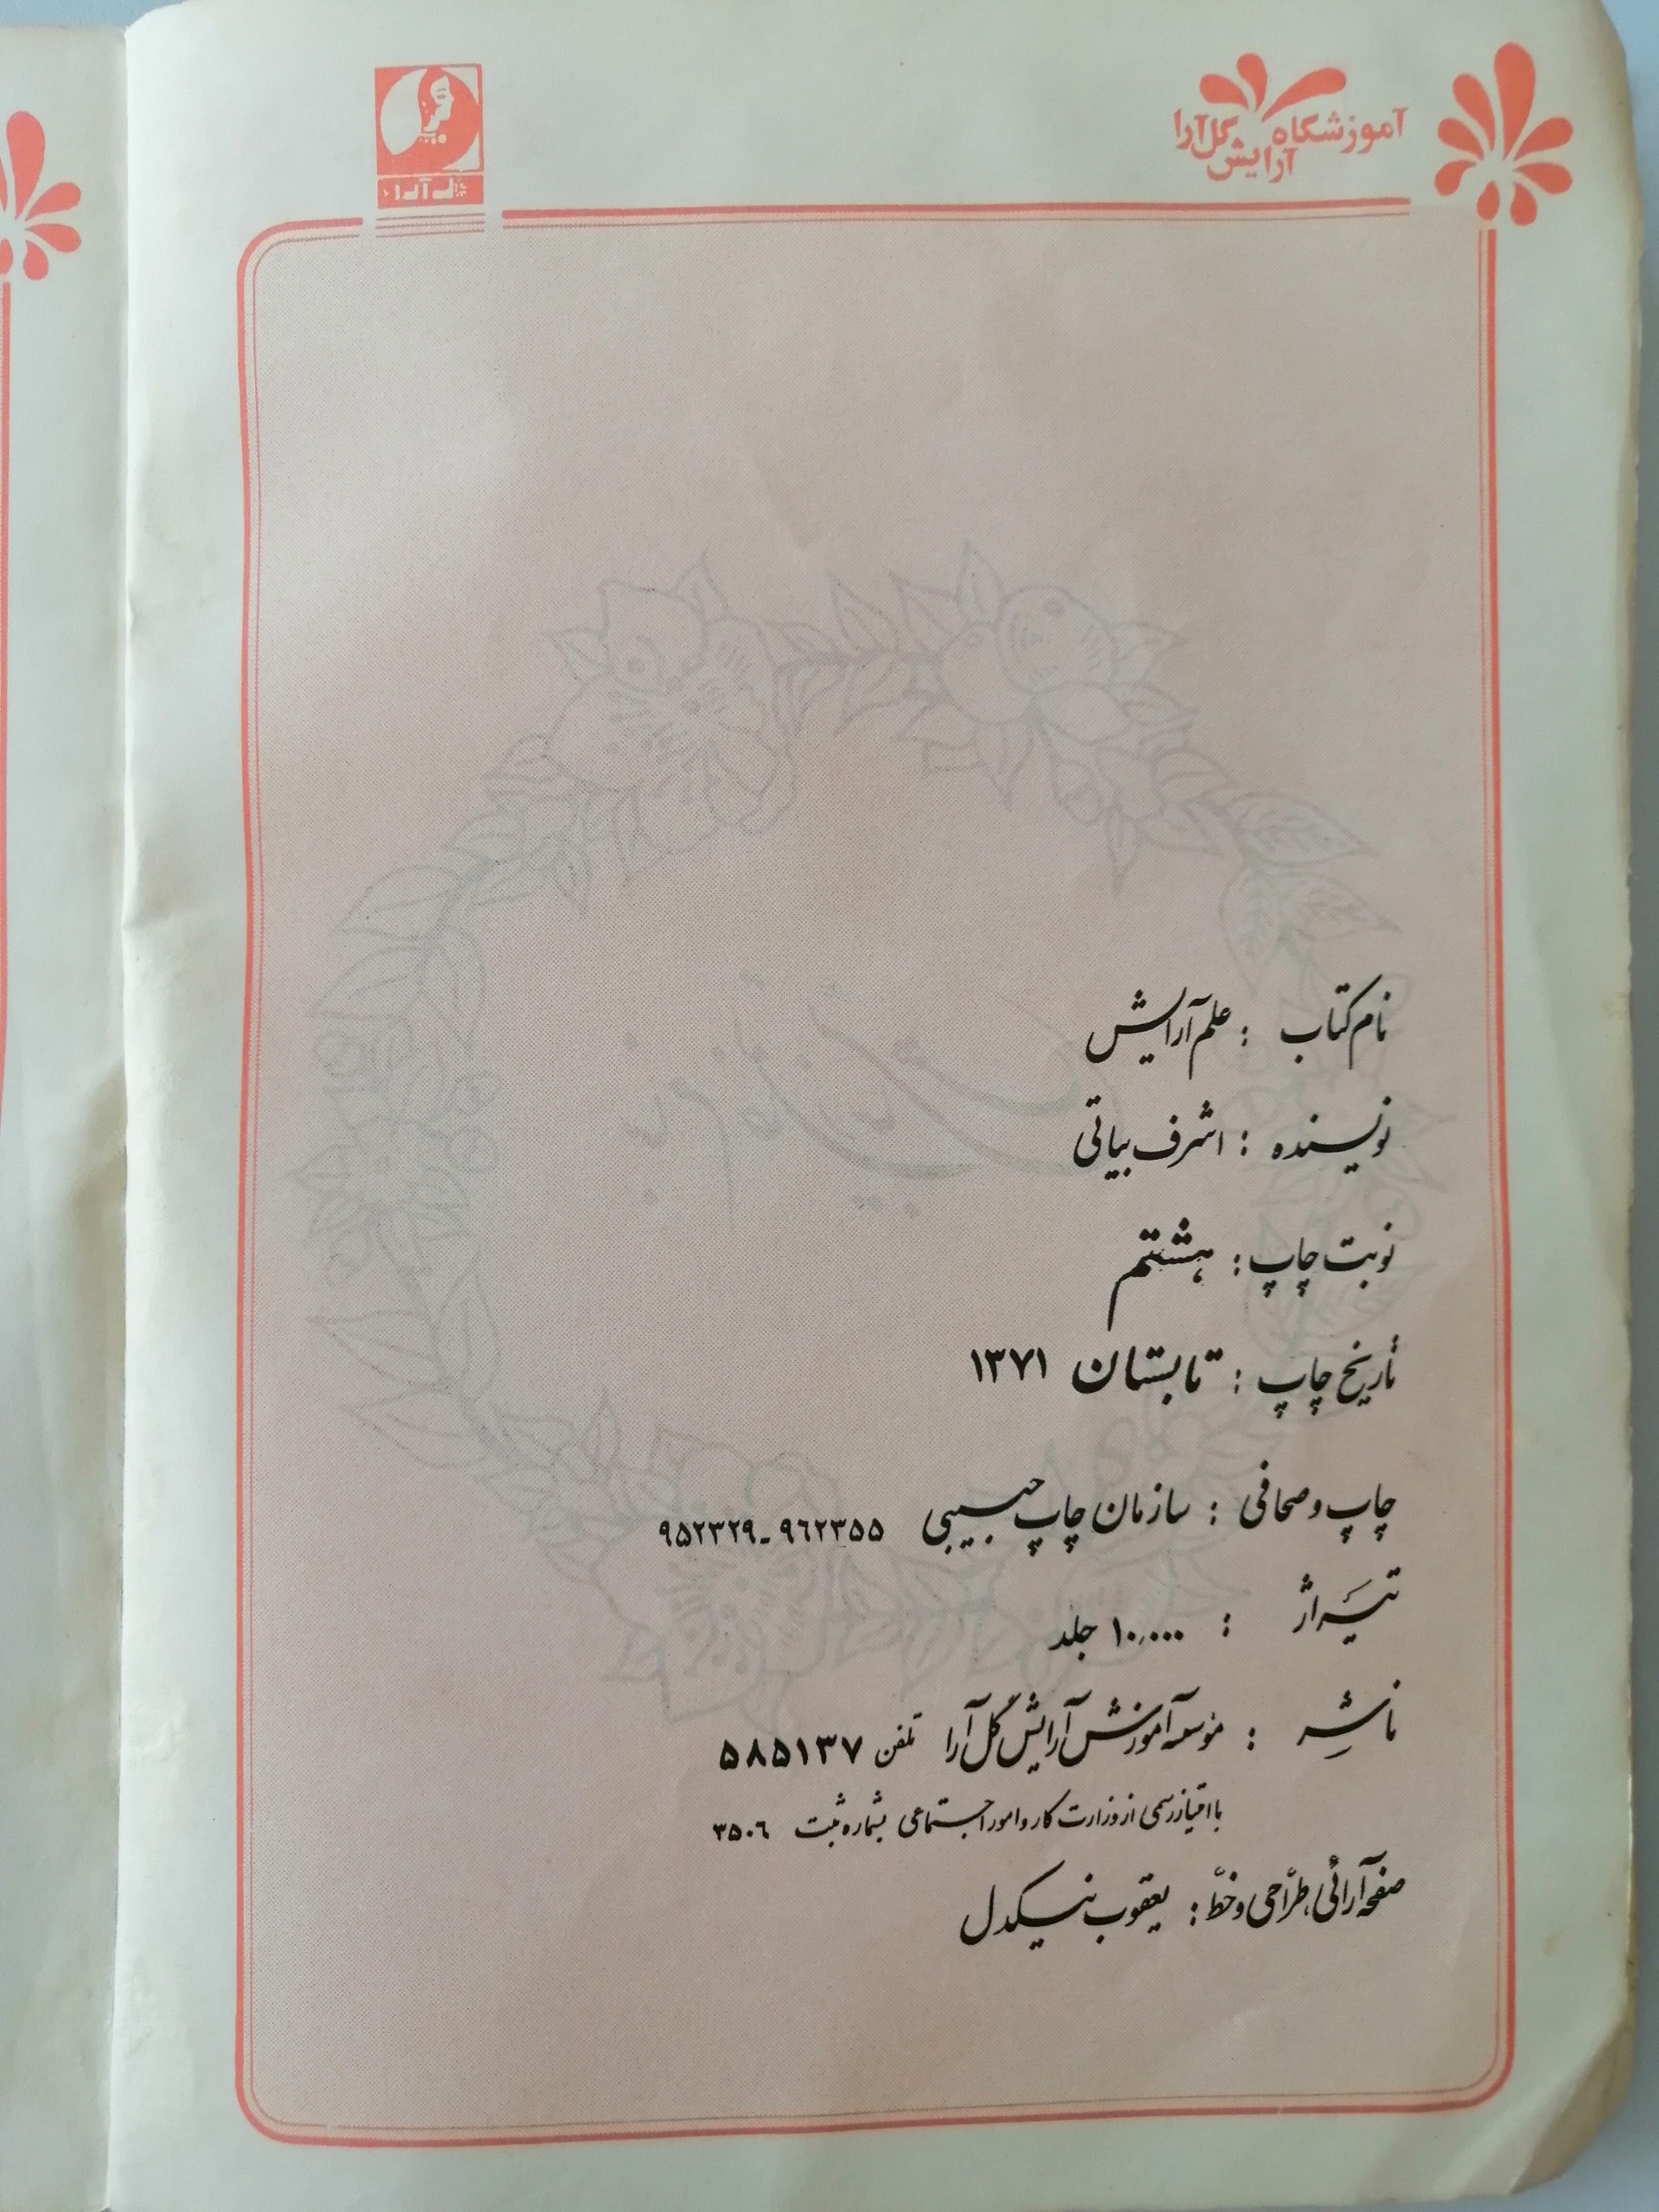 آموزشگاه گل‌آرا
آرایش
گل آرا
نام کتاب : علم آرایش
نویسنده : اشرف بیاتی
نوبت چاپ : هشتم
تاریخ چاپ : تابستان ۱۳۷۱
چاپ و صحافی : سازمان چاپ حبیبی ۹۶۲۳۵۵ - ۹۵۲۳۲۹
تیراژ : ۱۰,۰۰۰ جلد
ناشر : مؤسسه آموزش آرایش گل آرا تلفن ۵۸۵۱۳۷
با امتیاز رسمی از وزارت کار و امور اجتماعی بشماره ثبت ۳۵۰۶
صفحه آرائی، طرّاحی و خطّ : یعقوب نیکدل